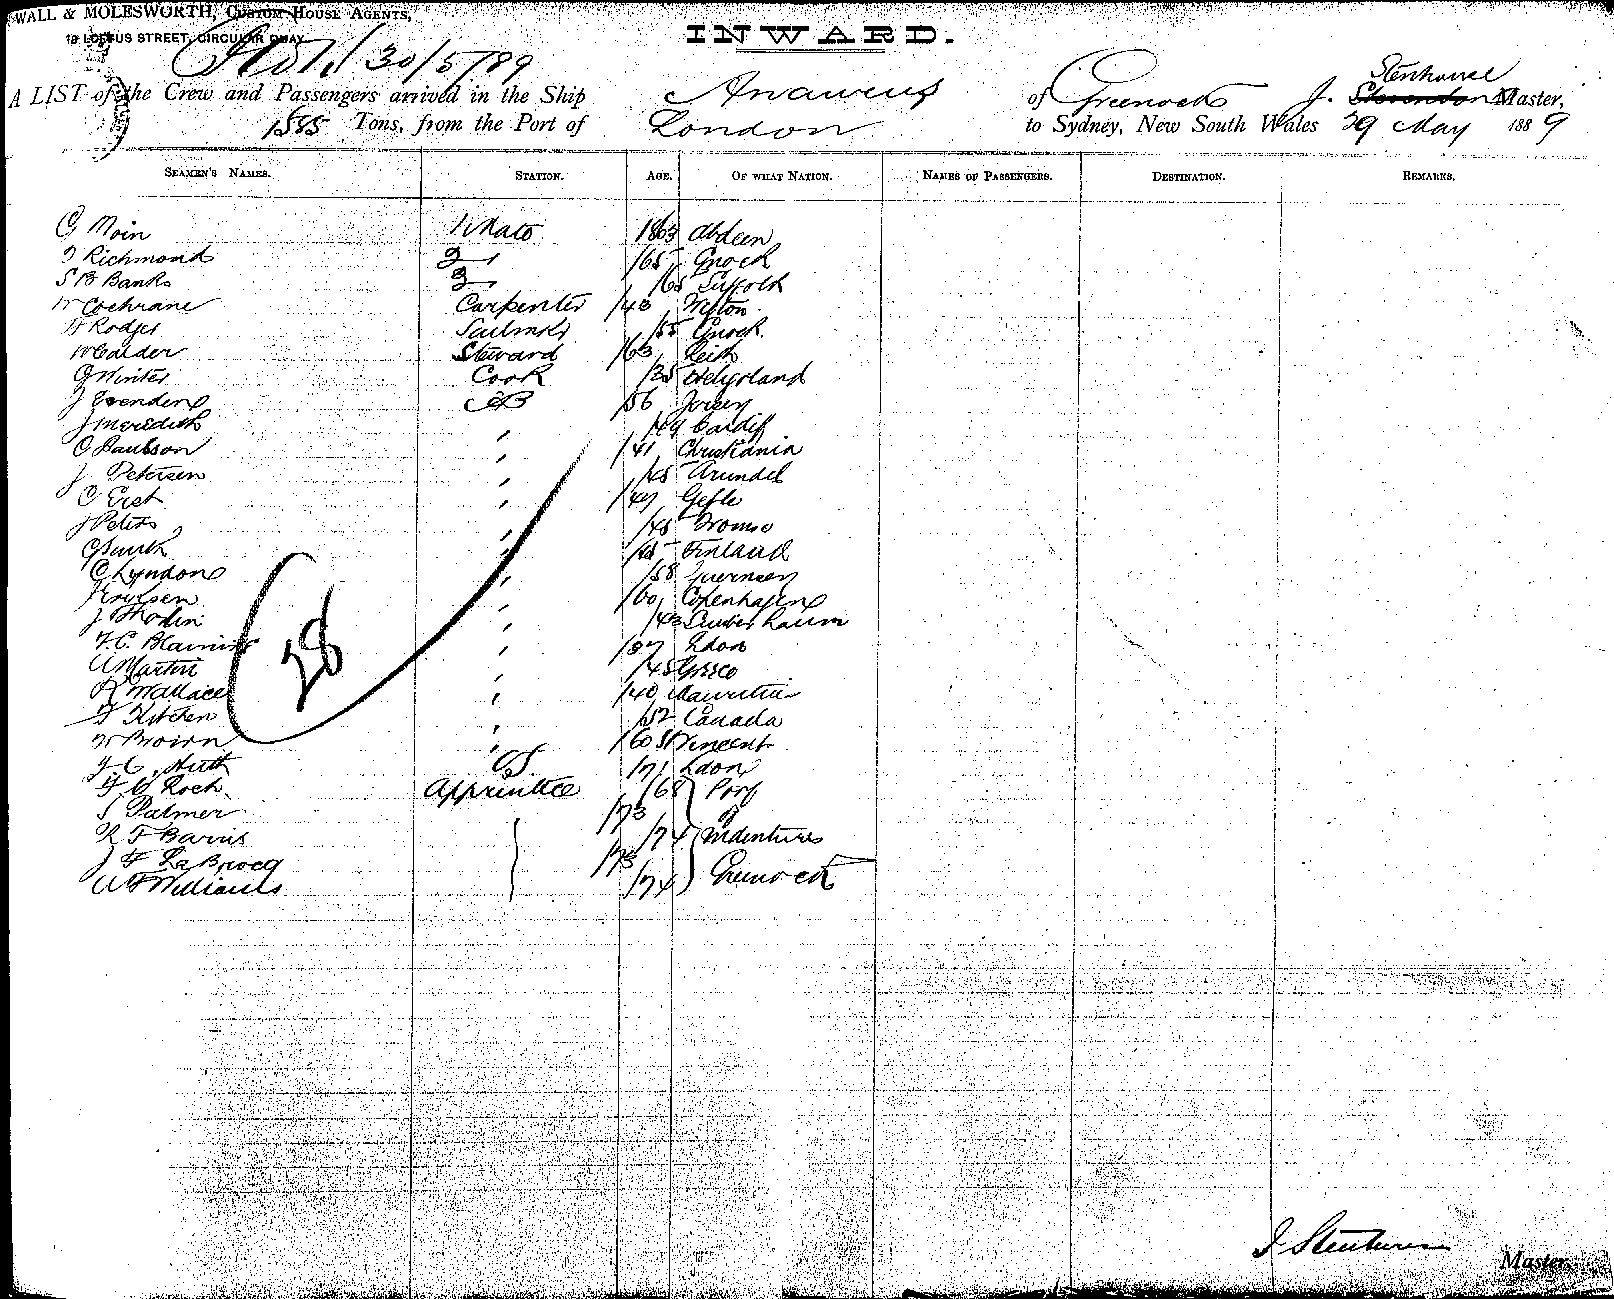 WALL & MOLESWORTH, CUSTOM HOUSE AGENTS,
19 LOFTUS STREET, CIRCULAR QUAY
INWARD.
30/5/89
A LIST of the Crew and Passengers arrived in the Ship of Greenock J. Stenhouse Master,
1585 Tons, from the Port of London to Sydney, New South Wales 29 May 1889
SEAMEN'S NAMES. STATION. AGE. OF WHAT NATION. NAMES OF PASSENGERS. DESTINATION. REMARKS.
G Moir 1 Mate 1863 Abdeen
J Richmond 2 " /65 Gnock
S B Banks 3 " /65 Suffolk
W Cochrane Carpenter /43
H Rodger Sailmkr /55 Gnock
W Calder Steward /63 Leith
G Winter Cook /35 Helgoland
J AB /56 Jersey
J Meredith " /49 Cardiff
C Paulson " /41 Christiania
J Petersen " /45 Arundel
C " /47 Gefle
J Peters " /45 Tromso
C Smith " Finland
C Lyndon " /58 Guernsey
" /60 Copenhagen
J Thodin "
F. C. " /37 Ldon
A Martin " /45 Greece
R Wallace " /40 Mauritius
Kitchen " /52 Canada
W Brown " /60 St Vincent
OS /71 Ldon
F C Roch Apprentice /68 Port
S Palmer /73 of
R F /74 Indentures
J F Le Brocq /73
W F Williams /74 Greenock
28
J Stenhouse
Master